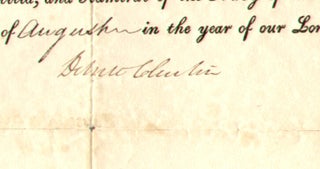 of August in the year of our Lor
DeWitt Clinton